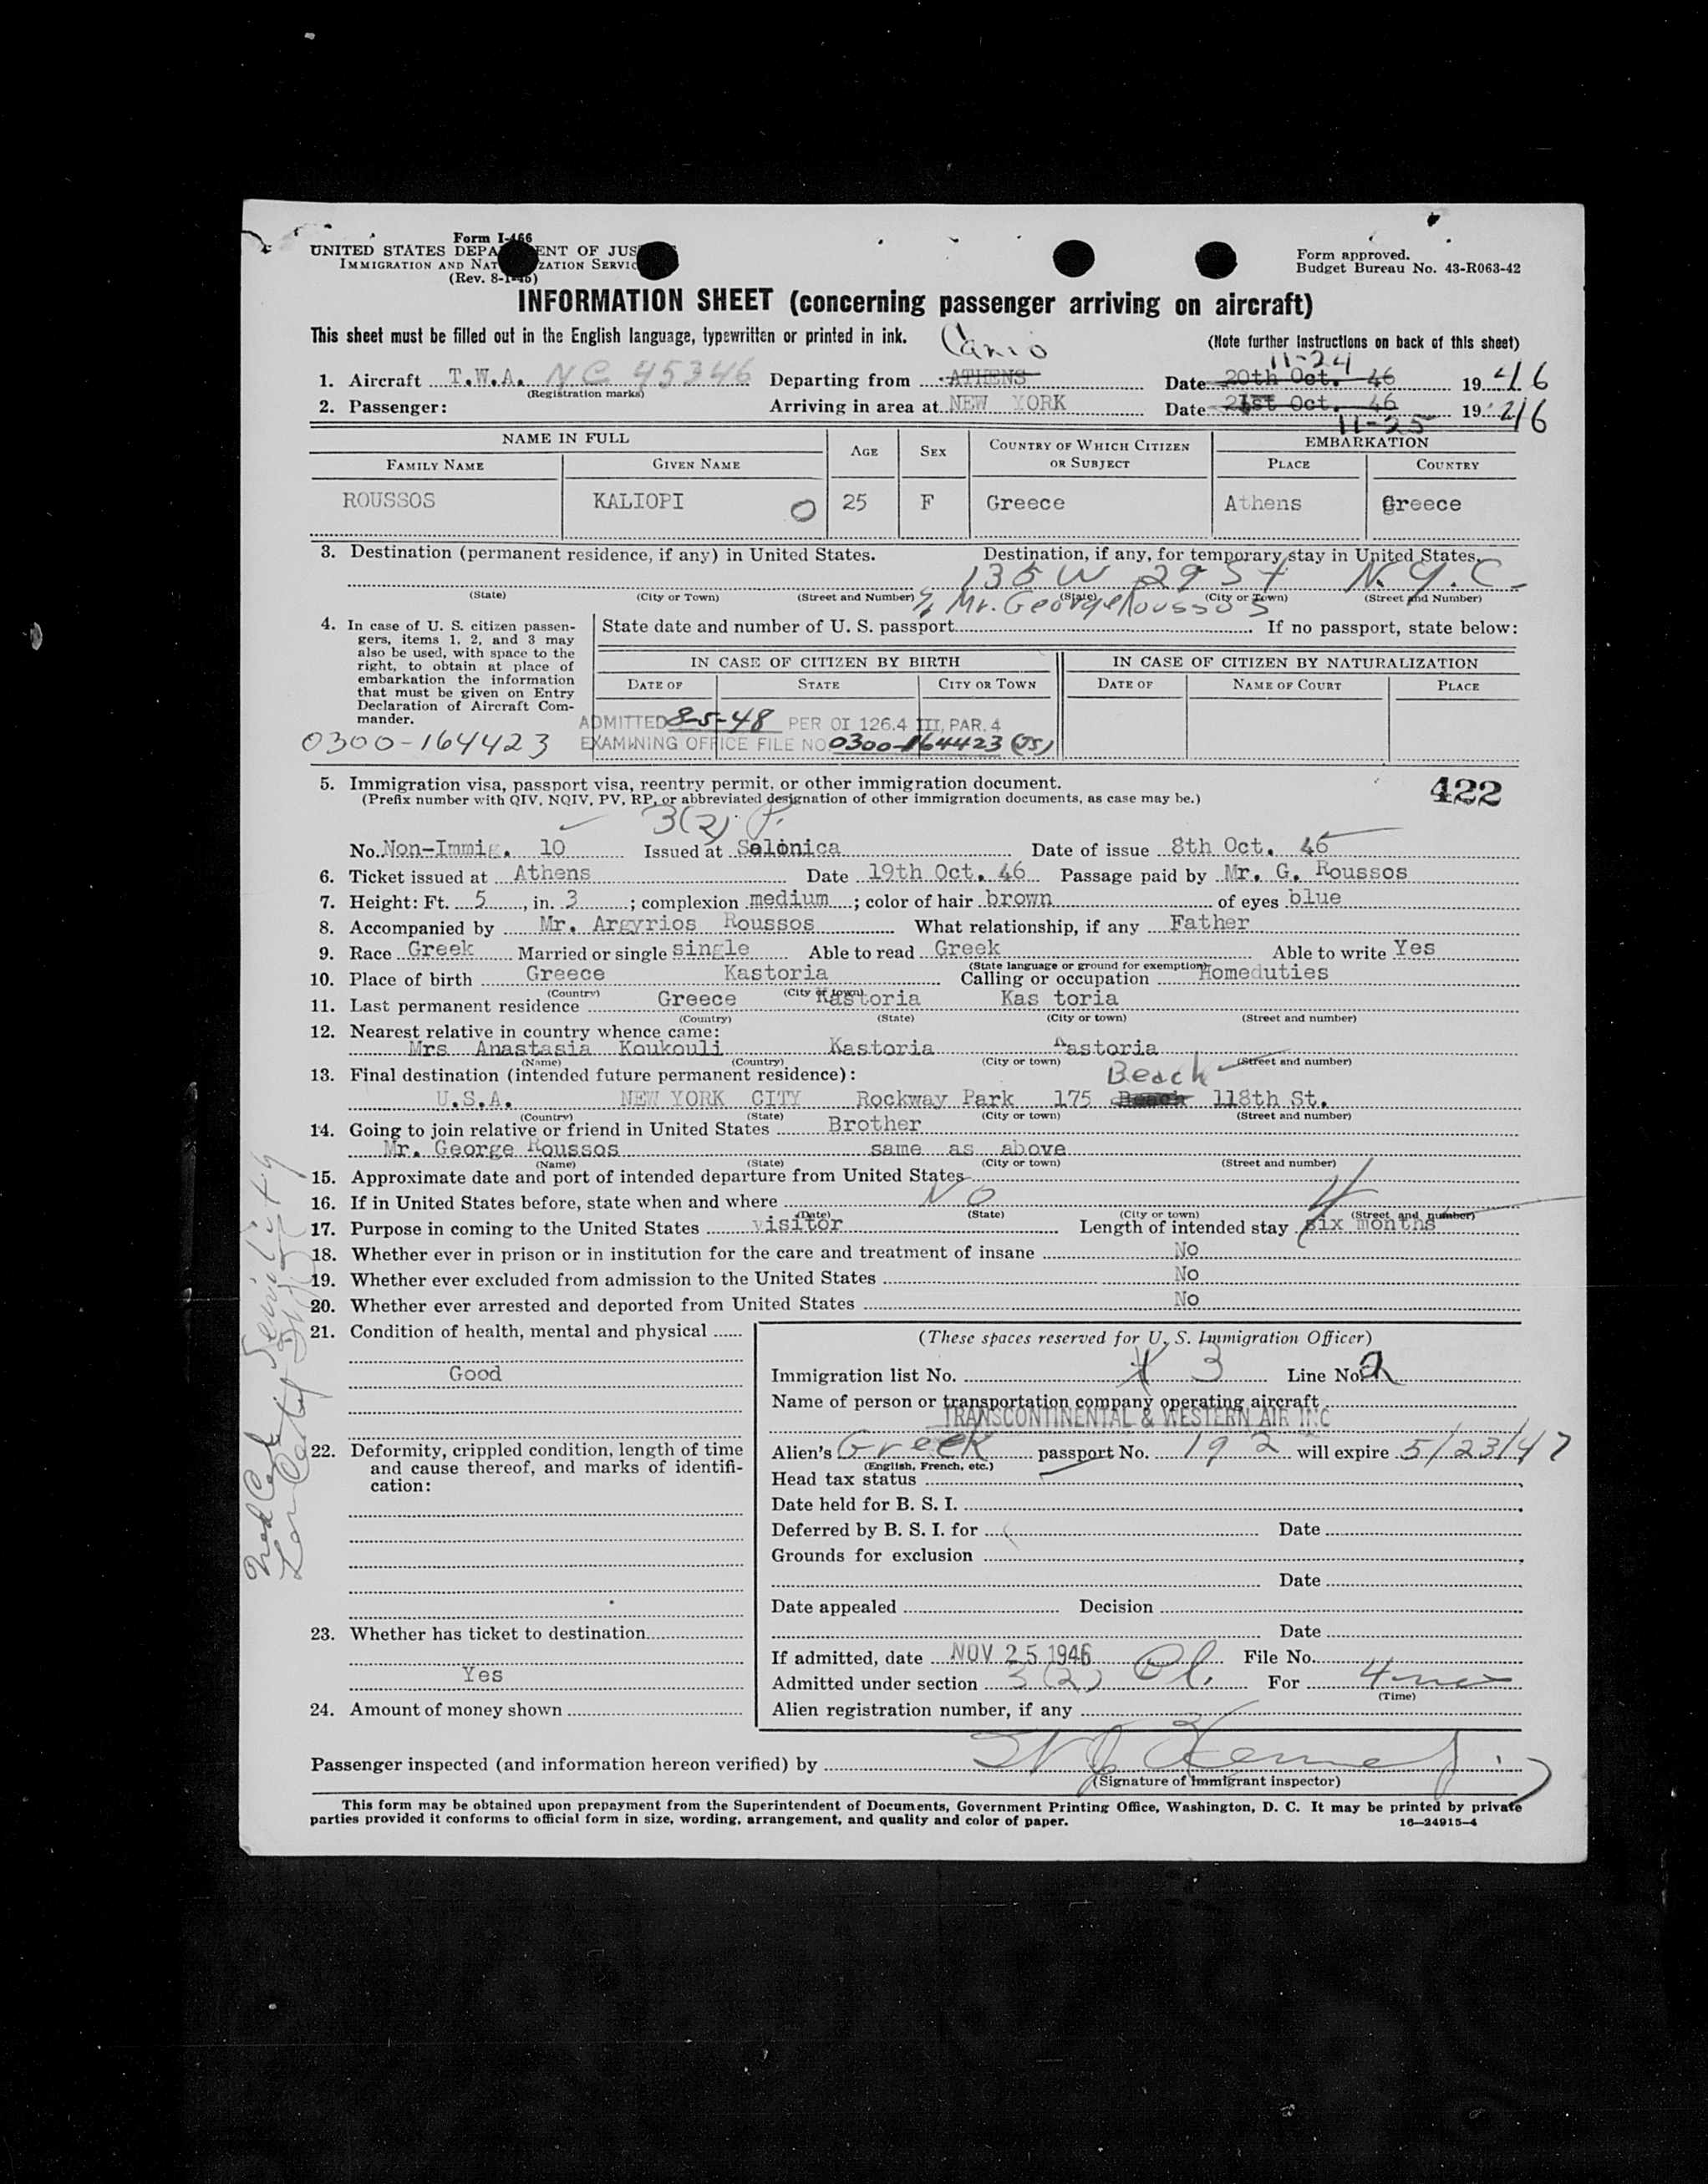 Form I-466
UNITED STATES DEPA ENT OF JUS
IMMIGRATION AND NAT ZATION SERVIC
(Rev. 8-1-45)
Form approved.
Budget Bureau No. 43-R063-42
INFORMATION SHEET (concerning passenger arriving on aircraft)
This sheet must be filled out in the English language, typewritten or printed in ink.
(Note further instructions on back of this sheet)
Cairo 11-24
1. Aircraft T.W.A. NC 45346 Departing from ATHENS Date 20th Oct. 46 19 46
(Registration marks)
2. Passenger: Arriving in area at NEW YORK Date 21st Oct. 46 19 46
11-25
NAME IN FULL AGE SEX COUNTRY OF WHICH CITIZEN OR SUBJECT EMBARKATION
FAMILY NAME GIVEN NAME PLACE COUNTRY
ROUSSOS KALIOPI O 25 F Greece Athens Greece
3. Destination (permanent residence, if any) in United States. Destination, if any, for temporary stay in United States.
135 W 29 St N.Y.C.
(State) (City or Town) (Street and Number) (State) (City or Town) (Street and Number)
% Mr. George Roussos
4. In case of U. S. citizen passengers, items 1, 2, and 3 may also be used, with space to the right, to obtain at place of embarkation the information that must be given on Entry Declaration of Aircraft Commander.
State date and number of U. S. passport If no passport, state below:
IN CASE OF CITIZEN BY BIRTH IN CASE OF CITIZEN BY NATURALIZATION
DATE OF STATE CITY OR TOWN DATE OF NAME OF COURT PLACE
ADMITTED 8-5-48 PER OI 126.4 III, PAR. 4
0300-164423 EXAMINING OFFICE FILE NO. 0300-164423 (JS)
5. Immigration visa, passport visa, reentry permit, or other immigration document.
(Prefix number with QIV, NQIV, PV, RP, or abbreviated designation of other immigration documents, as case may be.)
422
3(2) P.
No. Non-Immig. 10 Issued at Salonica Date of issue 8th Oct. 46
6. Ticket issued at Athens Date 19th Oct. 46 Passage paid by Mr. G. Roussos
7. Height: Ft. 5, in. 3; complexion medium; color of hair brown of eyes blue
8. Accompanied by Mr. Argyrios Roussos What relationship, if any Father
9. Race Greek Married or single single Able to read Greek Able to write Yes
(State language or ground for exemption)
10. Place of birth Greece Kastoria Calling or occupation Homeduties
(Country) (City or town)
11. Last permanent residence Greece Kastoria Kas toria
(Country) (State) (City or town) (Street and number)
12. Nearest relative in country whence came:
Mrs Anastasia Koukouli Kastoria Kastoria
(Name) (Country) (City or town) (Street and number)
13. Final destination (intended future permanent residence): Beach
U.S.A. NEW YORK CITY Rockway Park 175 Beach 118th St.
(Country) (State) (City or town) (Street and number)
14. Going to join relative or friend in United States Brother
Mr. George Roussos same as above
(Name) (State) (City or town) (Street and number)
15. Approximate date and port of intended departure from United States
16. If in United States before, state when and where No
(Date) (State) (City or town) (Street and number)
4
17. Purpose in coming to the United States visitor Length of intended stay six months
18. Whether ever in prison or in institution for the care and treatment of insane No
19. Whether ever excluded from admission to the United States No
20. Whether ever arrested and deported from United States No
21. Condition of health, mental and physical
Good
22. Deformity, crippled condition, length of time and cause thereof, and marks of identification:
23. Whether has ticket to destination
Yes
24. Amount of money shown
Med Cert Senility
(These spaces reserved for U. S. Immigration Officer)
Immigration list No. 3 Line No. 2
Name of person or transportation company operating aircraft
TRANSCONTINENTAL & WESTERN AIR INC
Alien's Greek passport No. 192 will expire 5/23/47
(English, French, etc.)
Head tax status
Date held for B. S. I.
Deferred by B. S. I. for Date
Grounds for exclusion
Date
Date appealed Decision
Date
If admitted, date NOV 25 1946 File No.
Admitted under section 3(2) For 4 mo
(Time)
Alien registration number, if any
Passenger inspected (and information hereon verified) by
(Signature of immigrant inspector)
This form may be obtained upon prepayment from the Superintendent of Documents, Government Printing Office, Washington, D. C. It may be printed by private
parties provided it conforms to official form in size, wording, arrangement, and quality and color of paper.
16—24915-4